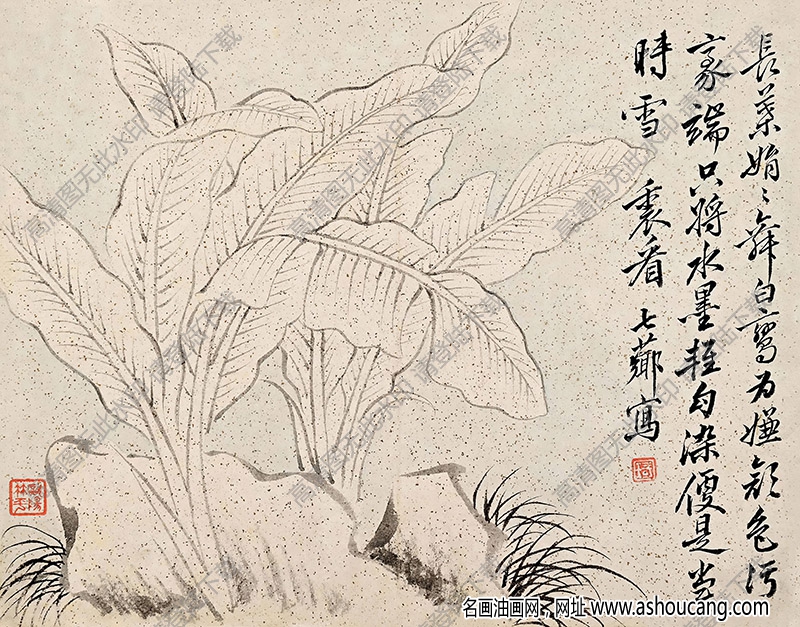 長葉娟〻舞白鸞为嫌顏色污
豪端只將水墨輕勾染便是当
時雪裏看 七薌寫
高清图无此水印 请登陆下载
名画油画网，网址 www.ashoucang.com